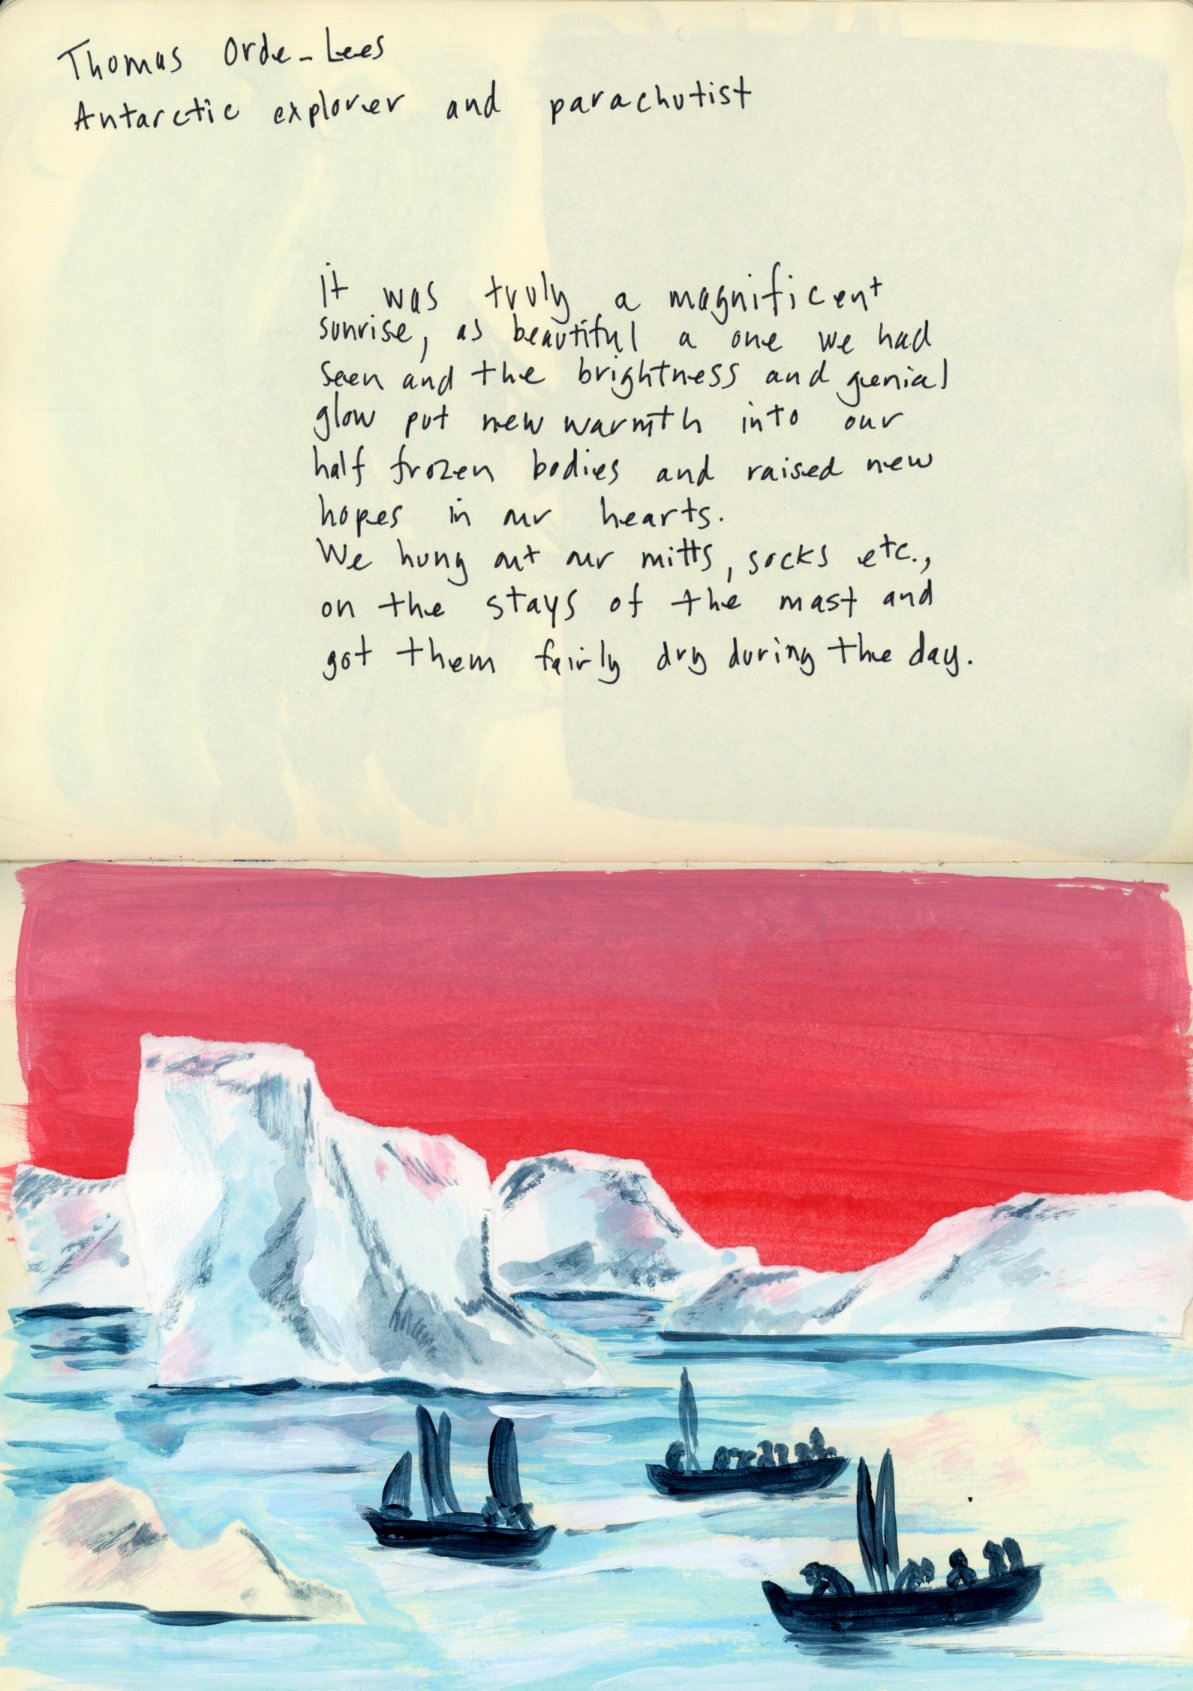 Thomas Orde-Lees
Antarctic explorer and parachutist
It was truly a magnificent
sunrise, as beautiful a one we had
seen and the brightness and genial
glow put new warmth into our
half frozen bodies and raised new
hopes in our hearts.
We hung out our mitts, socks etc.,
on the stays of the mast and
got them fairly dry during the day.